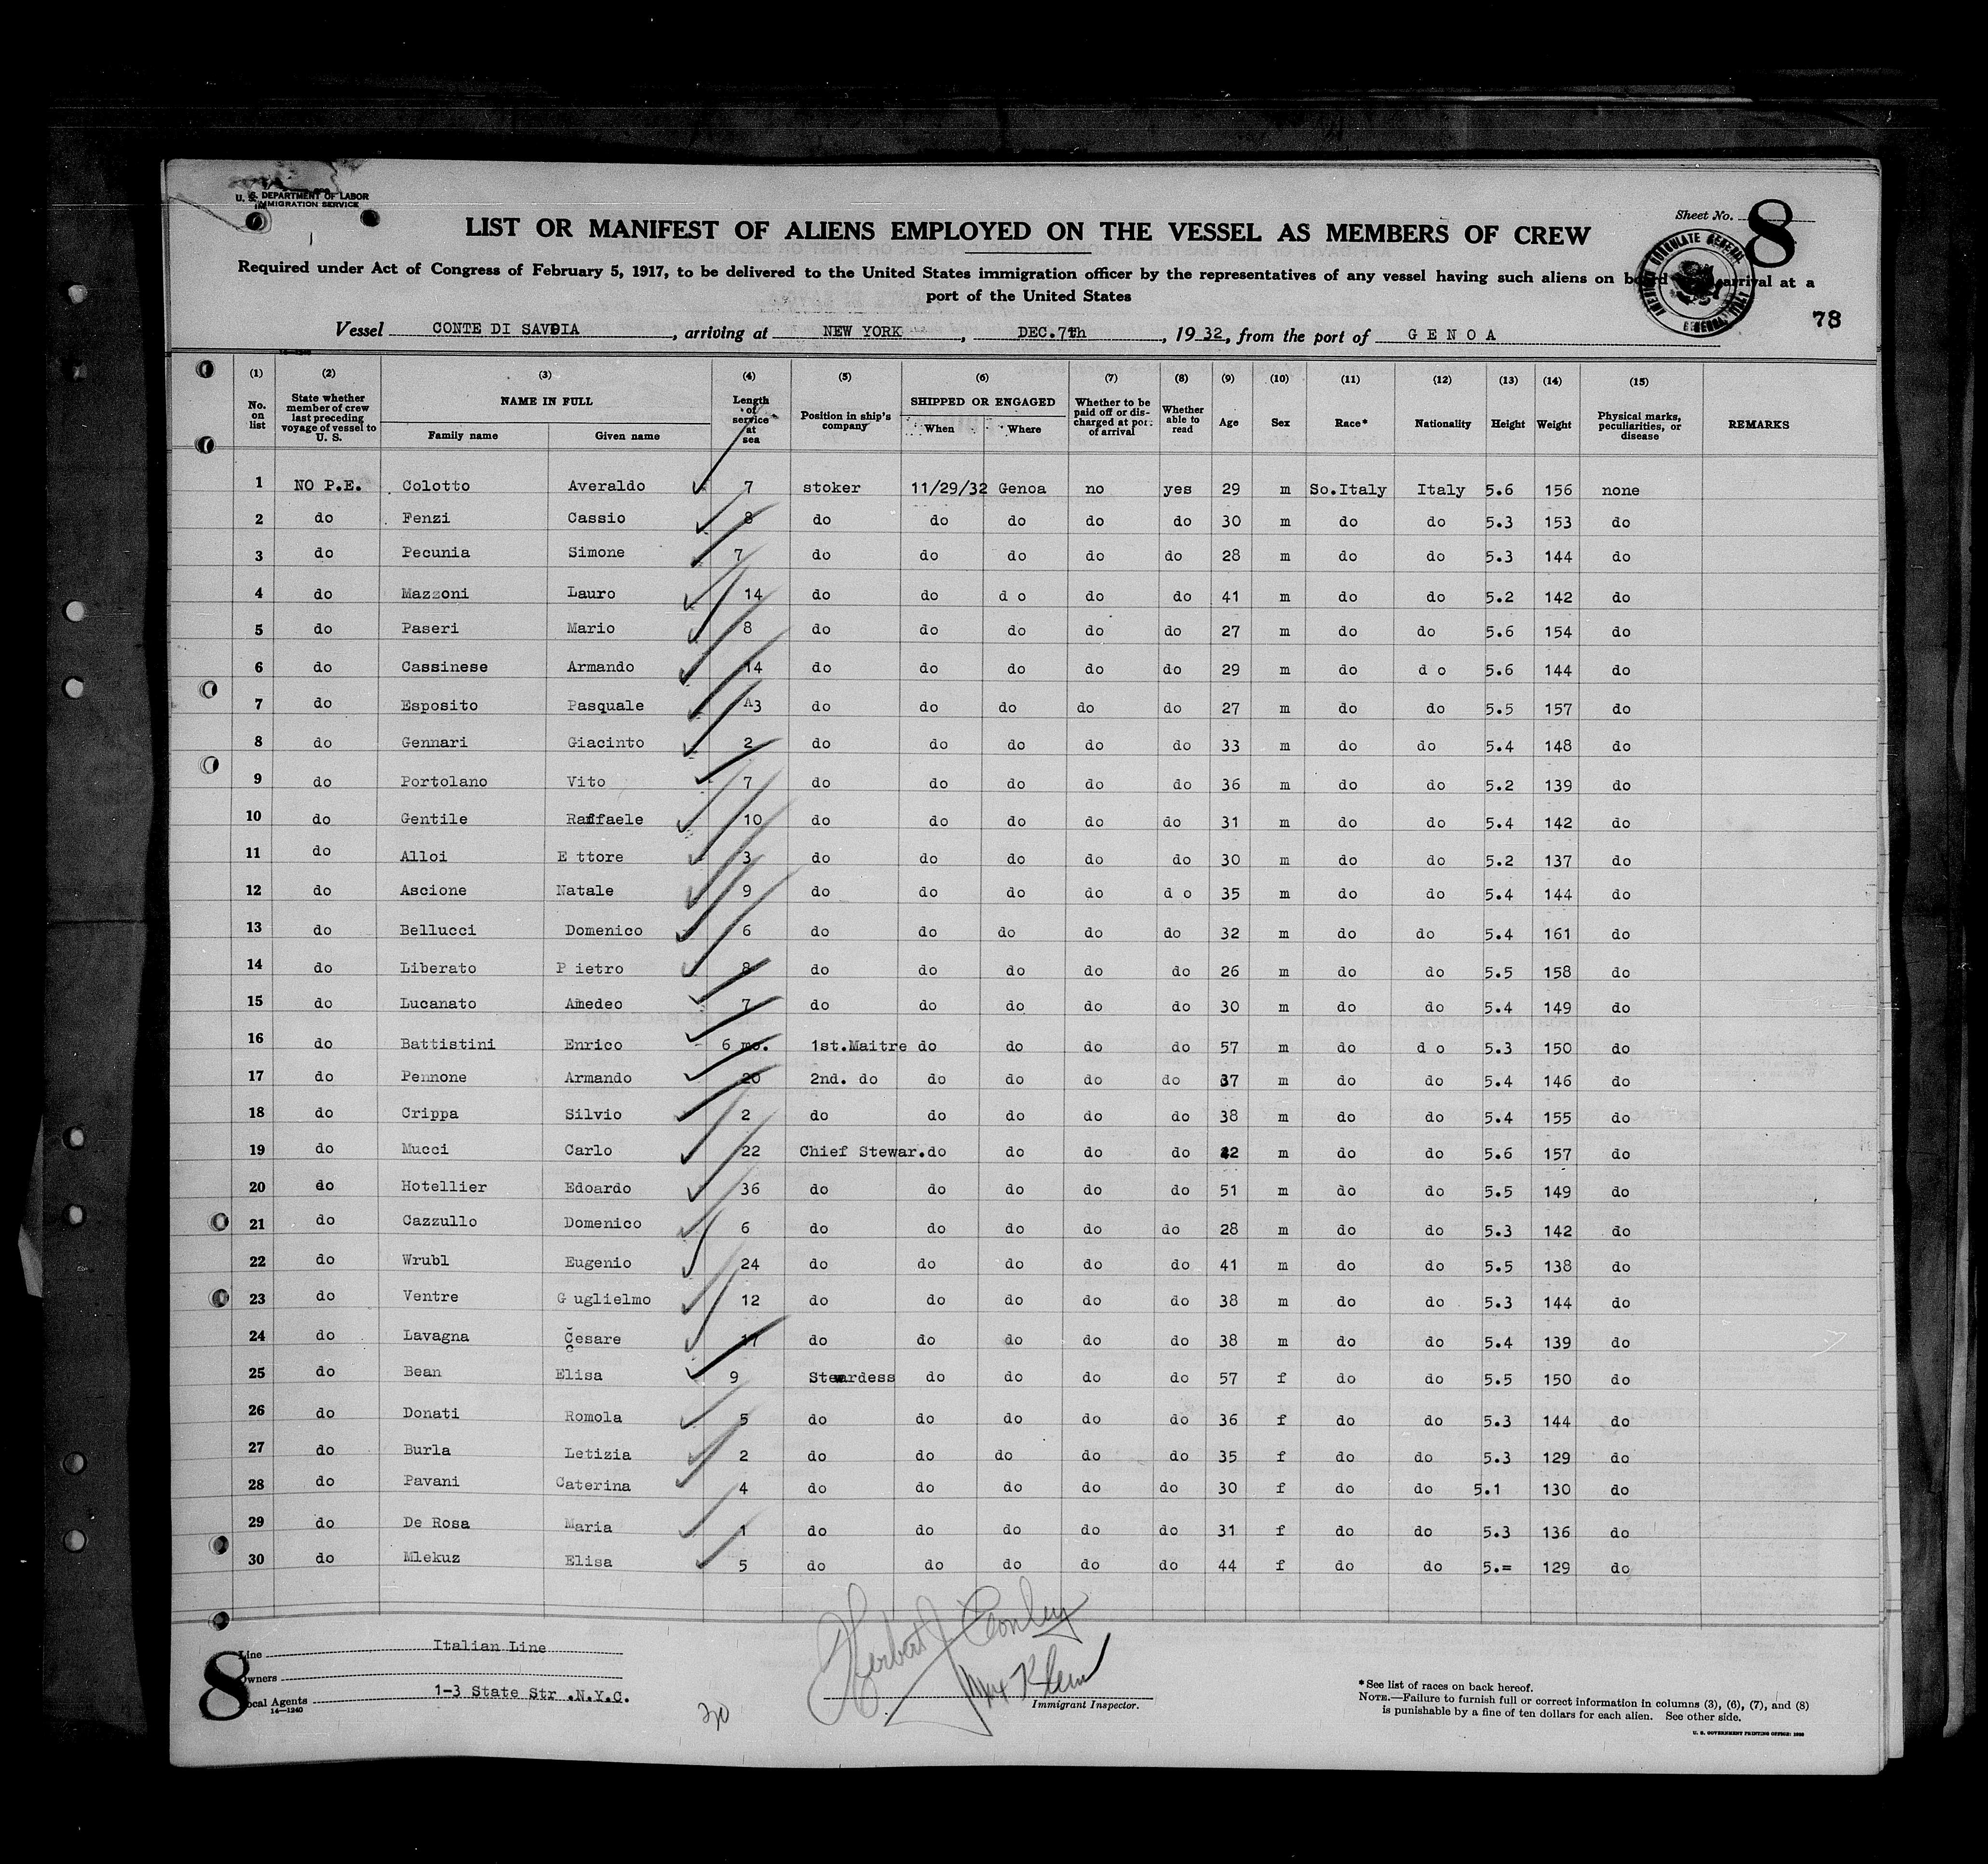 U. S. DEPARTMENT OF LABOR
IMMIGRATION SERVICE
Sheet No. 8
LIST OR MANIFEST OF ALIENS EMPLOYED ON THE VESSEL AS MEMBERS OF CREW
AMERICAN CONSULATE GENERAL
Required under Act of Congress of February 5, 1917, to be delivered to the United States immigration officer by the representatives of any vessel having such aliens on board arrival at a
port of the United States
78
Vessel CONTE DI SAVOIA, arriving at NEW YORK, DEC.7th, 1932, from the port of GENOA
(1) (2) (3) (4) (5) (6) (7) (8) (9) (10) (11) (12) (13) (14) (15)
No. on list State whether member of crew last preceding voyage of vessel to U. S. NAME IN FULL Family name Given name Length of service at sea Position in ship's company SHIPPED OR ENGAGED When Where Whether to be paid off or discharged at port of arrival Whether able to read Age Sex Race* Nationality Height Weight Physical marks, peculiarities, or disease REMARKS
1 NO P.E. Colotto Averaldo 7 stoker 11/29/32 Genoa no yes 29 m So.Italy Italy 5.6 156 none
2 do Fenzi Cassio 8 do do do do do 30 m do do 5.3 153 do
3 do Pecunia Simone 7 do do do do do 28 m do do 5.3 144 do
4 do Mazzoni Lauro 14 do do d o do do 41 m do do 5.2 142 do
5 do Paseri Mario 8 do do do do do 27 m do do 5.6 154 do
6 do Cassinese Armando 14 do do do do do 29 m do d o 5.6 144 do
7 do Esposito Pasquale 3 do do do do do 27 m do do 5.5 157 do
8 do Gennari Giacinto 2 do do do do do 33 m do do 5.4 148 do
9 do Portolano Vito 7 do do do do do 36 m do do 5.2 139 do
10 do Gentile Raffaele 10 do do do do do 31 m do do 5.4 142 do
11 do Alloi E ttore 3 do do do do do 30 m do do 5.2 137 do
12 do Ascione Natale 9 do do do do d o 35 m do do 5.4 144 do
13 do Bellucci Domenico 6 do do do do do 32 m do do 5.4 161 do
14 do Liberato P ietro 8 do do do do do 26 m do do 5.5 158 do
15 do Lucanato Amedeo 7 do do do do do 30 m do do 5.4 149 do
16 do Battistini Enrico 6 mo. 1st.Maitre do do do do 57 m do d o 5.3 150 do
17 do Pennone Armando 20 2nd. do do do do do 37 m do do 5.4 146 do
18 do Crippa Silvio 2 do do do do do 38 m do do 5.4 155 do
19 do Mucci Carlo 22 Chief Stewar. do do do do 42 m do do 5.6 157 do
20 do Hotellier Edoardo 36 do do do do do 51 m do do 5.5 149 do
21 do Cazzullo Domenico 6 do do do do do 28 m do do 5.3 142 do
22 do Wrubl Eugenio 24 do do do do do 41 m do do 5.5 138 do
23 do Ventre G uglielmo 12 do do do do do 38 m do do 5.3 144 do
24 do Lavagna Cesare 17 do do do do do 38 m do do 5.4 139 do
25 do Bean Elisa 9 Stewardess do do do do 57 f do do 5.5 150 do
26 do Donati Romola 5 do do do do do 36 f do do 5.3 144 do
27 do Burla Letizia 2 do do do do do 35 f do do 5.3 129 do
28 do Pavani Caterina 4 do do do do do 30 f do do 5.1 130 do
29 do De Rosa Maria 1 do do do do do 31 f do do 5.3 136 do
30 do Mlekuz Elisa 5 do do do do do 44 f do do 5.= 129 do
8
Line Italian Line
Owners
Local Agents 1-3 State Str .N.Y.C.
14—1240
30
Herbert J Conley
Max Klein
Immigrant Inspector.
*See list of races on back hereof.
NOTE.—Failure to furnish full or correct information in columns (3), (6), (7), and (8)
is punishable by a fine of ten dollars for each alien. See other side.
U. S. GOVERNMENT PRINTING OFFICE